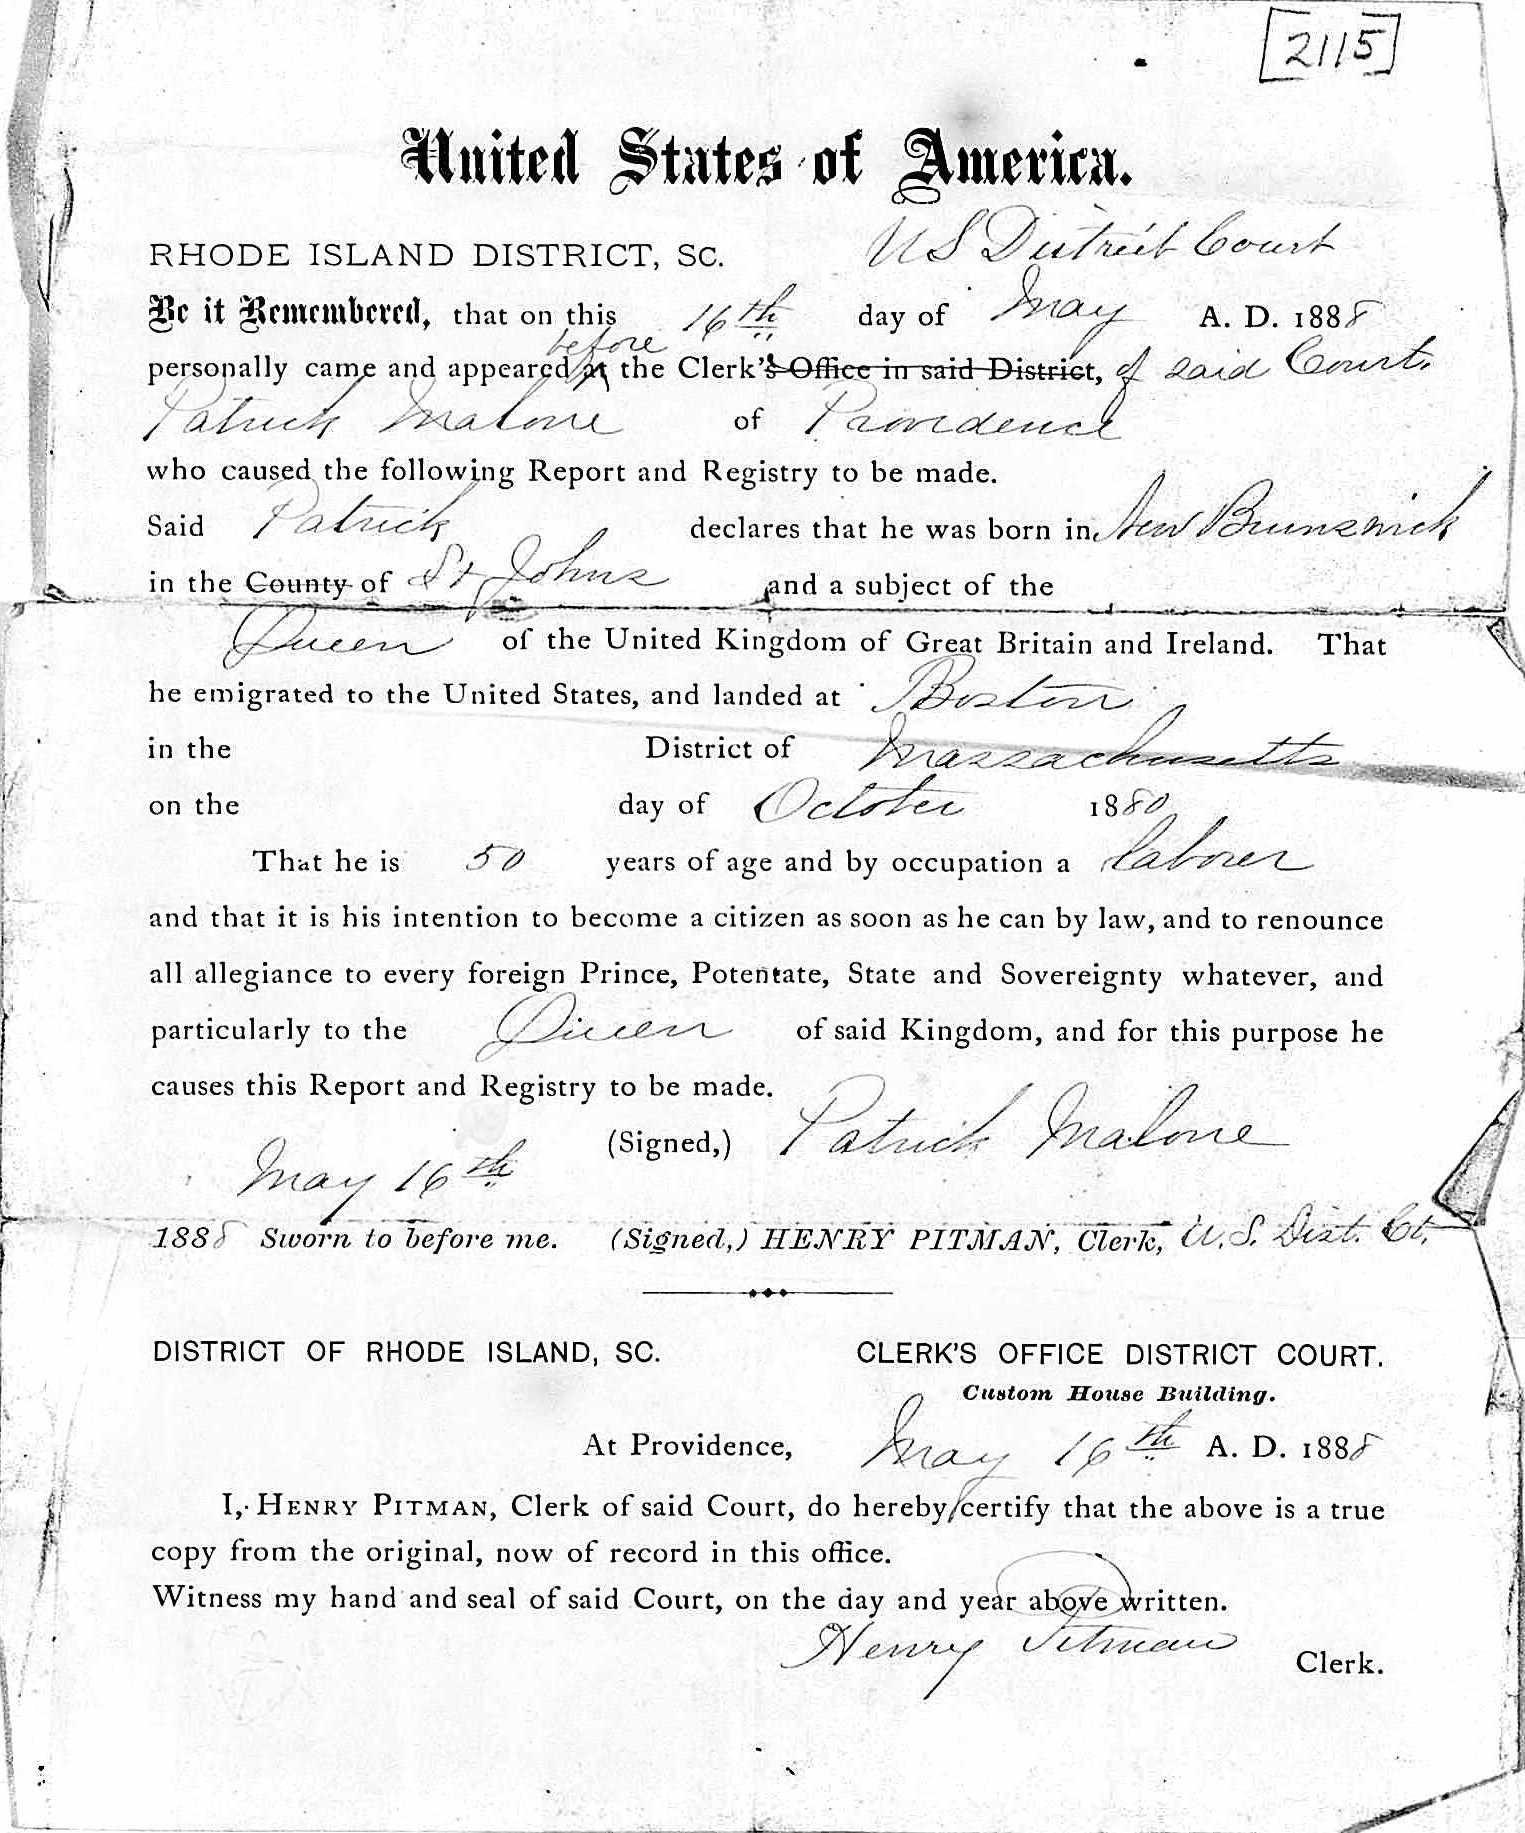 [2115]
United States of America.
RHODE ISLAND DISTRICT, SC. US District Court
Be it Remembered, that on this 16th day of May A. D. 1888
before
personally came and appeared at the Clerk's Office in said District, of said Court.
Patrick Malone of Providence
who caused the following Report and Registry to be made.
Said Patrick declares that he was born in New Brunswick
in the County of St Johns and a subject of the
Queen of the United Kingdom of Great Britain and Ireland. That
he emigrated to the United States, and landed at Boston
in the District of Massachusetts
on the day of October 1880
That he is 50 years of age and by occupation a laborer
and that it is his intention to become a citizen as soon as he can by law, and to renounce
all allegiance to every foreign Prince, Potentate, State and Sovereignty whatever, and
particularly to the Queen of said Kingdom, and for this purpose he
causes this Report and Registry to be made.
(Signed,) Patrick Malone
May 16th
1888 Sworn to before me. (Signed,) HENRY PITMAN, Clerk, U. S. Dist. Ct.
DISTRICT OF RHODE ISLAND, SC. CLERK'S OFFICE DISTRICT COURT.
Custom House Building.
At Providence, May 16th A. D. 1888
I, HENRY PITMAN, Clerk of said Court, do hereby certify that the above is a true
copy from the original, now of record in this office.
Witness my hand and seal of said Court, on the day and year above written.
Henry Pitman
Clerk.